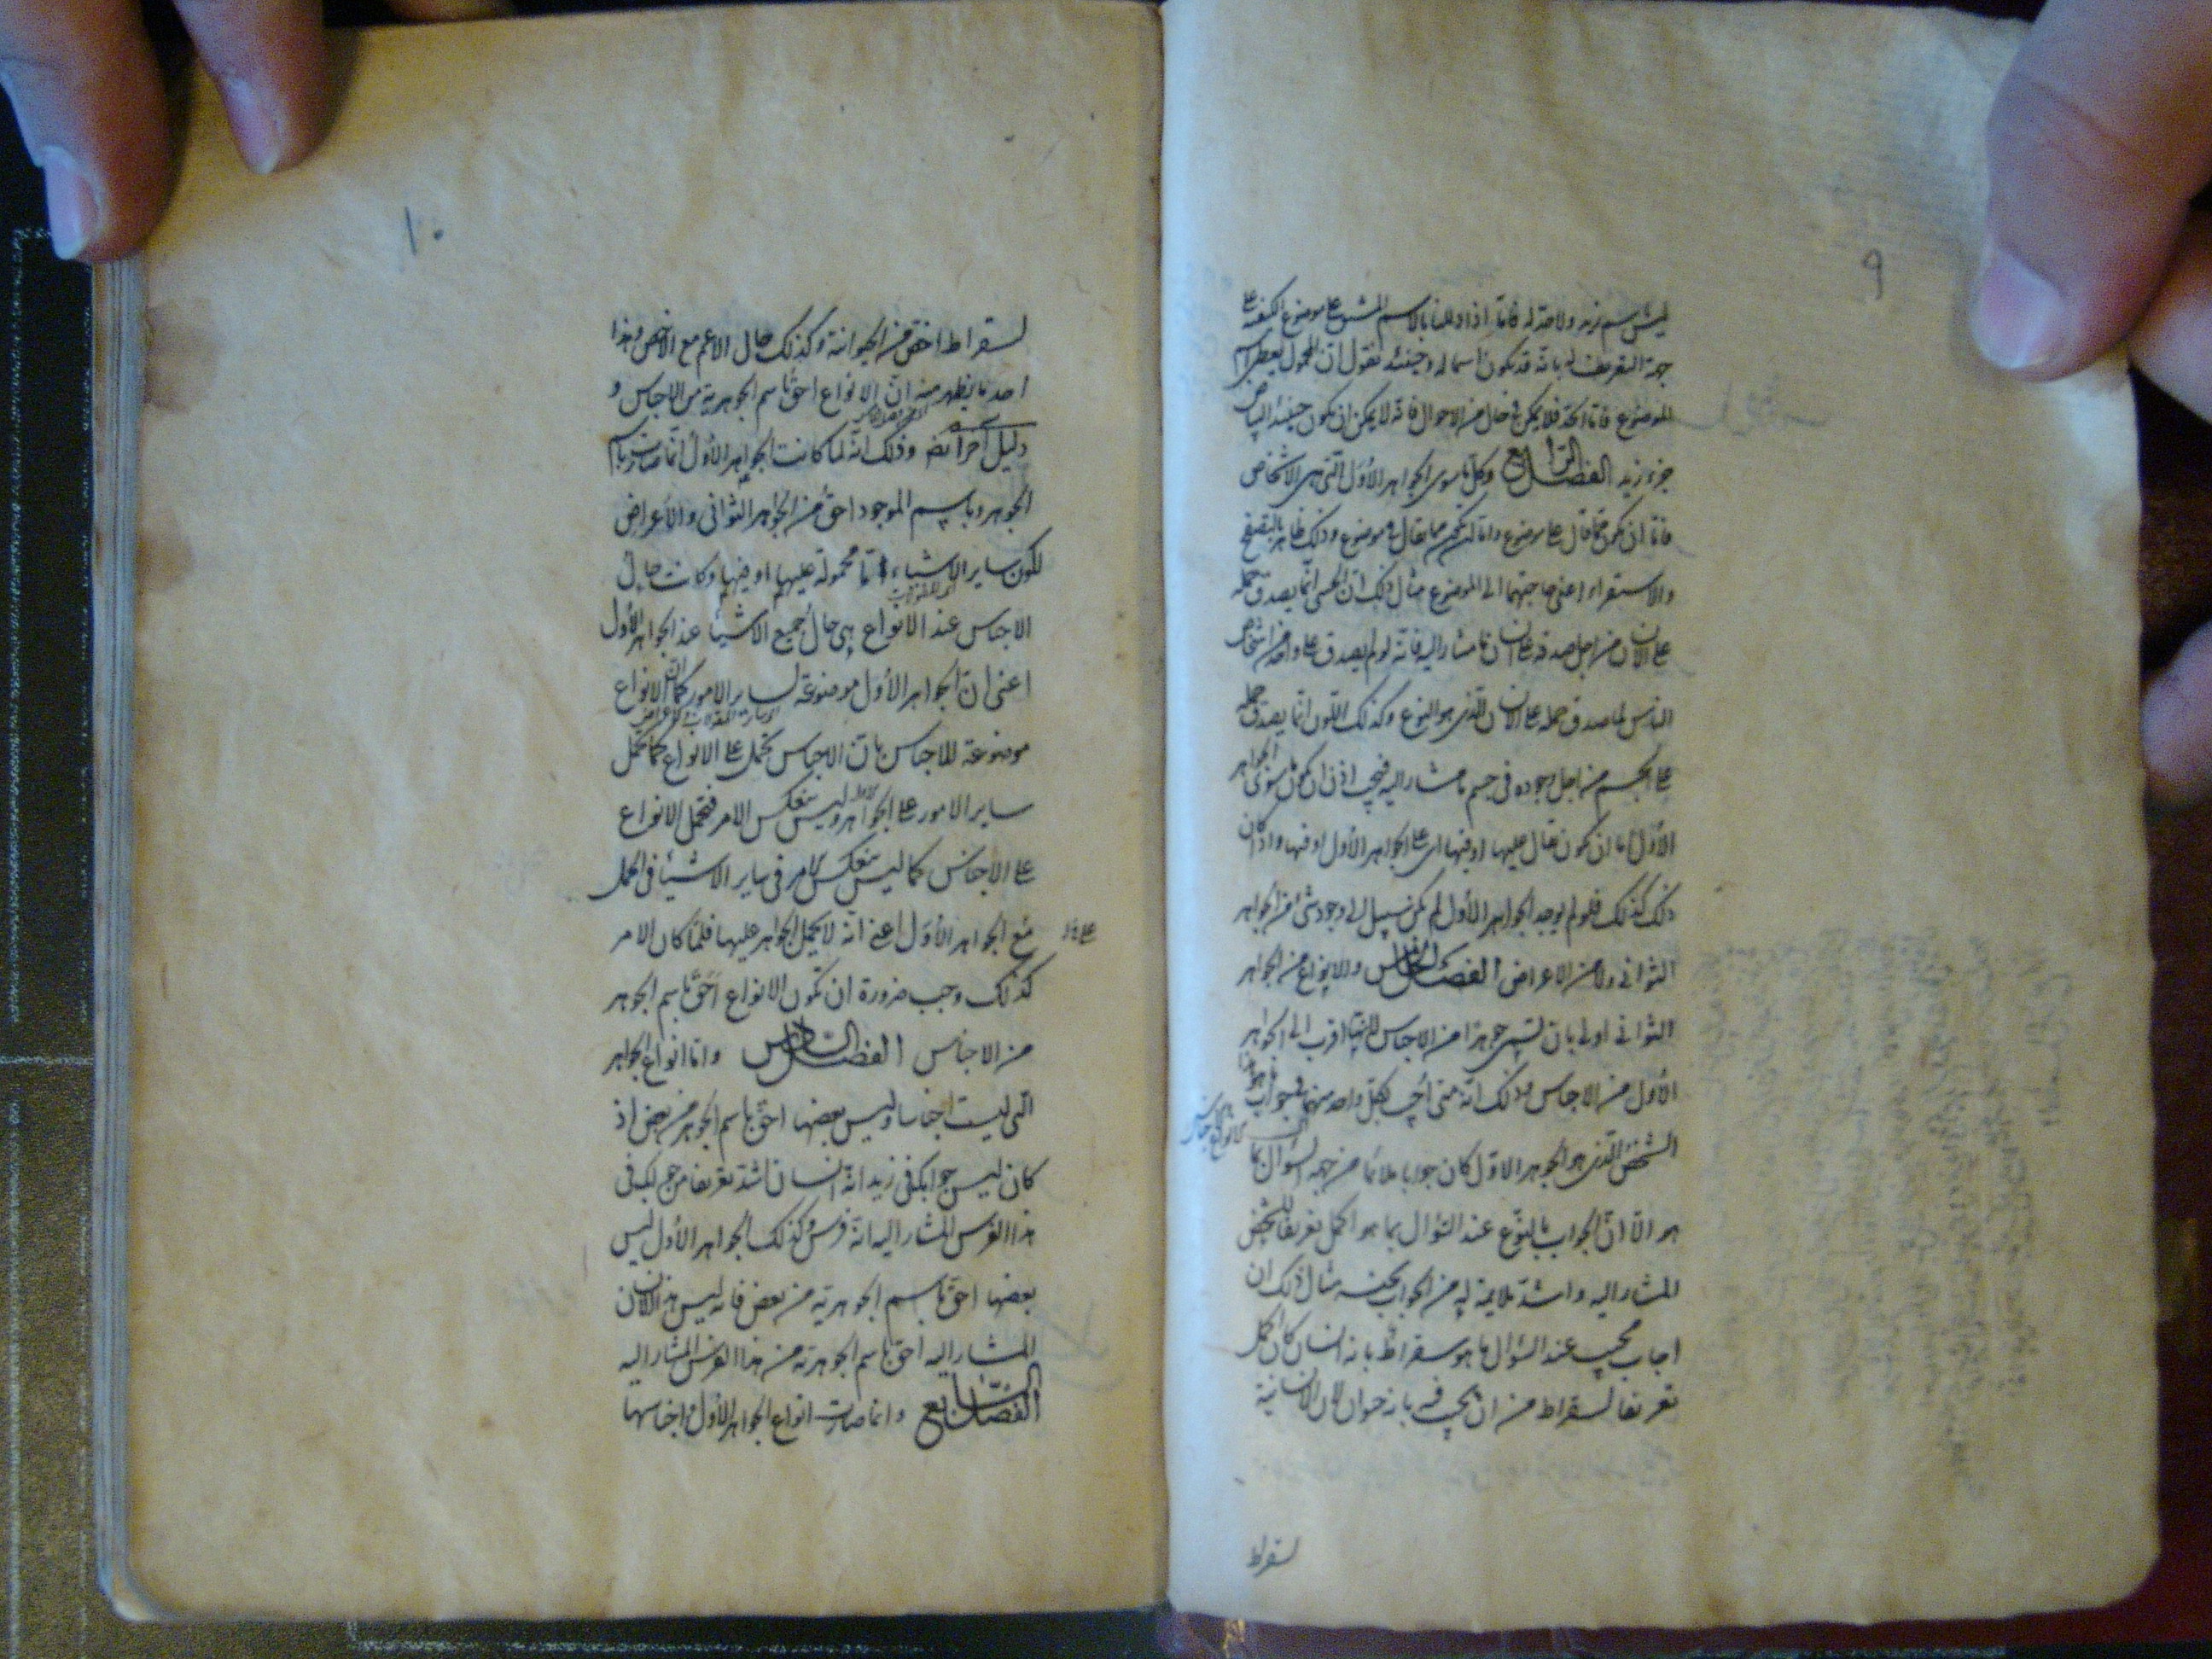 ٩
ليس اسم زيد ولا حد له فاما اذا دللنا بالاسم المشتق على موضوع الكيفية على
جهة التعريف له بانه قد يكون اسما له وحينئذ نقول ان المحمول يعطى اسم
الموضوع فاما الحد فلا يمكن في حال من الاحوال فانه لا يمكن ان يكون حينئذ البياض
جزء زيد الفصل الرابع وكل ما سوى الجواهر الأُوَل التي هي الاشخاص
فاما ان يكون مما يقال على موضوع واما ان يكون مما يقال في موضوع وذلك ظاهر بالتصفح
والاستقراء اعني حاجتهما الى الموضوع مثال ذلك ان الحي انما يصدق حمله
على الانسان من اجل صدقه على انسان ما مشار اليه فانه لو لم يصدق على واحد من اشخاص
الناس لما صدق حمله على الانسان الذي هو النوع وكذلك اللون انما يصدق حمله
على الجسم من اجل وجوده في جسم ما مشار اليه فيجب اذن ان يكون ما سوى الجواهر
الأُوَل اما ان يكون يقال عليها او فيها اى على الجواهر الأول او فيها واذا كان
ذلك كذلك فلو لم يوجد الجواهر الأول لم يكن سبيل الى وجود شئ من الجواهر
الثواني ولا من الاعراض الفصل الخامس والانواع من الجواهر
الثواني اولى بان تسمى جوهرا من الاجناس لانها اقرب الى الجواهر
الأول من الاجناس وذلك انه متى اُجيب بكل واحد منهما في جواب ما هو هذا
الشخص الذي هو الجوهر الاول كان جوابا ملائما من جهة السؤال بما
هو الا ان الجواب بالنوع عند السؤال بما هو اكمل تعريفا للشخص
المشار اليه واشد ملايمة له من الجواب بجنسه مثال ذلك ان
اجاب مجيب عند السؤال ما هو سقراط بانه انسان كان اكمل
تعريفا لسقراط من ان يجيب فيه بانه حيوان لان الانسانية
لسقراط
١٠
لسقراط اخص من الحيوانية وكذلك حال الاعم مع الاخص وهذا
احد ما يظهر منه ان الانواع احق باسم الجوهرية من الاجناس و
دليل آخر ايضا وذلك انه لما كانت الجواهر الأُول انما صارت باسم
الجوهر وباسم الموجود احق من الجواهر الثواني والاعراض
لكون ساير الاشياء اما محمولة عليها او فيها وكانت حال
الاجناس عند الانواع هي حال جميع الاشياء عند الجواهر الأُول
اعني ان الجواهر الأُول موضوعة لساير الامور كما ان الانواع
موضوعة للاجناس بان الاجناس تحمل على الانواع كما تحمل
ساير الامور على الجواهر الاول وليس ينعكس الامر فتحمل الانواع
على الاجناس كما ليس ينعكس الامر في ساير الاشياء في الحمل
مع الجواهر الأُوَل اعني انه لا يحمل الجواهر عليها فلما كان الامر
كذلك وجب ضرورة ان تكون الانواع احق باسم الجوهر
من الاجناس الفصل السادس واما انواع الجواهر
التي ليست اجناسا وليس بعضها احق باسم الجوهر من بعض اذ
كان ليس جوابك في زيد انه انسان اشد تعريفا من جوابك في
هذا الفرس المشار اليه انه فرس وكذلك الجواهر الأول ليس
بعضها احق باسم الجوهرية من بعض فانه ليس هذا الانسان
المشار اليه احق باسم الجوهرية من هذا الفرس المشار اليه
الفصل السابع وانما صارت انواع الجواهر الأول واجناسها